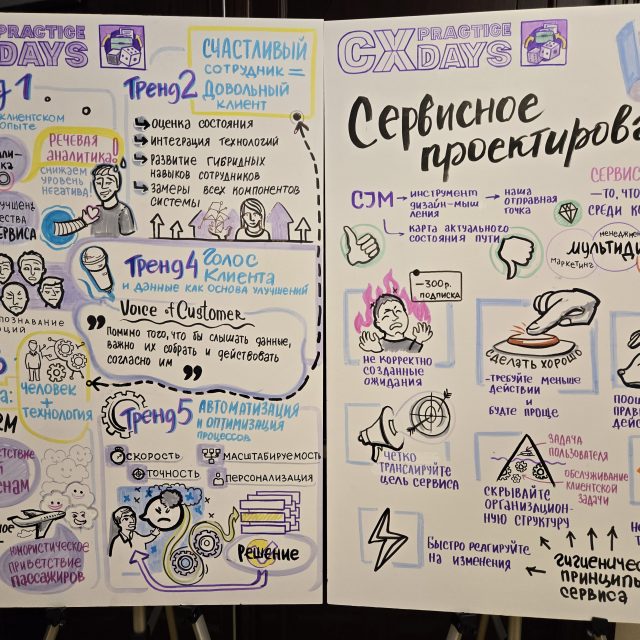 CX PRACTICE DAYS
1
клиентском
опыте
РЕЧЕВАЯ
АНАЛИТИКА!
СНИЖАЕМ
УРОВЕНЬ
НЕГАТИВА!
СЕРВИСА
ЧЕЛОВЕК
+
ТЕХНОЛОГИЯ
ЮМОРИСТИЧЕСКОЕ
ПРИВЕТСТВИЕ
ПАССАЖИРОВ
Тренд2
СЧАСТЛИВЫЙ
СОТРУДНИК =
ДОВОЛЬНЫЙ
КЛИЕНТ
ОЦЕНКА СОСТОЯНИЯ
ИНТЕГРАЦИЯ ТЕХНОЛОГИЙ
РАЗВИТИЕ ГИБРИДНЫХ
НАВЫКОВ СОТРУДНИКОВ
ЗАМЕРЫ ВСЕХ КОМПОНЕНТОВ
СИСТЕМЫ
Тренд4 ГОЛОС
КЛИЕНТА
И ДАННЫЕ КАК ОСНОВА УЛУЧШЕНИЙ
Voice of Customer
" Помимо того, что бы слышать данные,
важно их собрать и действовать
согласно им "
Тренд5 АВТОМАТИЗАЦИЯ
И ОПТИМИЗАЦИЯ
ПРОЦЕССОВ
СКОРОСТЬ
МАСШТАБИРУЕМОСТЬ
ТОЧНОСТЬ
ПЕРСОНАЛИЗАЦИЯ
РЕШЕНИЕ
CX PRACTICE DAYS
Сервисное
CJM
ИНСТРУМЕНТ
ДИЗАЙН-МЫШ
ЛЕНИЯ
НАША
ОТПРАВНАЯ
ТОЧКА
КАРТА АКТУАЛЬНОГО
СОСТОЯНИЯ ПУТИ
— ТО, ЧТО
СРЕДИ
МАРКЕТИНГ
— 300р.
ПОДПИСКА
НЕ КОРРЕКТНО
СОЗДАННЫЕ
ОЖИДАНИЯ
СДЕЛАТЬ ХОРОШО
-ТРЕБУЙТЕ МЕНЬШЕ
ДЕЙСТВИЙ
И
БУДТЕ ПРОЩЕ
ЧЕТКО
ТРАНСЛИРУЙТЕ
ЦЕЛЬ СЕРВИСА
ЗАДАЧА
ПОЛЬЗОВАТЕЛЯ
ОБСЛУЖИВАНИЕ
КЛИЕНТСКОЙ
ЗАДАЧИ
СКРЫВАЙТЕ
ОРГАНИЗАЦИОН-
НУЮ СТРУКТУРУ
БЫСТРО РЕАГИРУЙТЕ
НА ИЗМЕНЕНИЯ
ПРИНЦИПЫ
СЕРВИСА